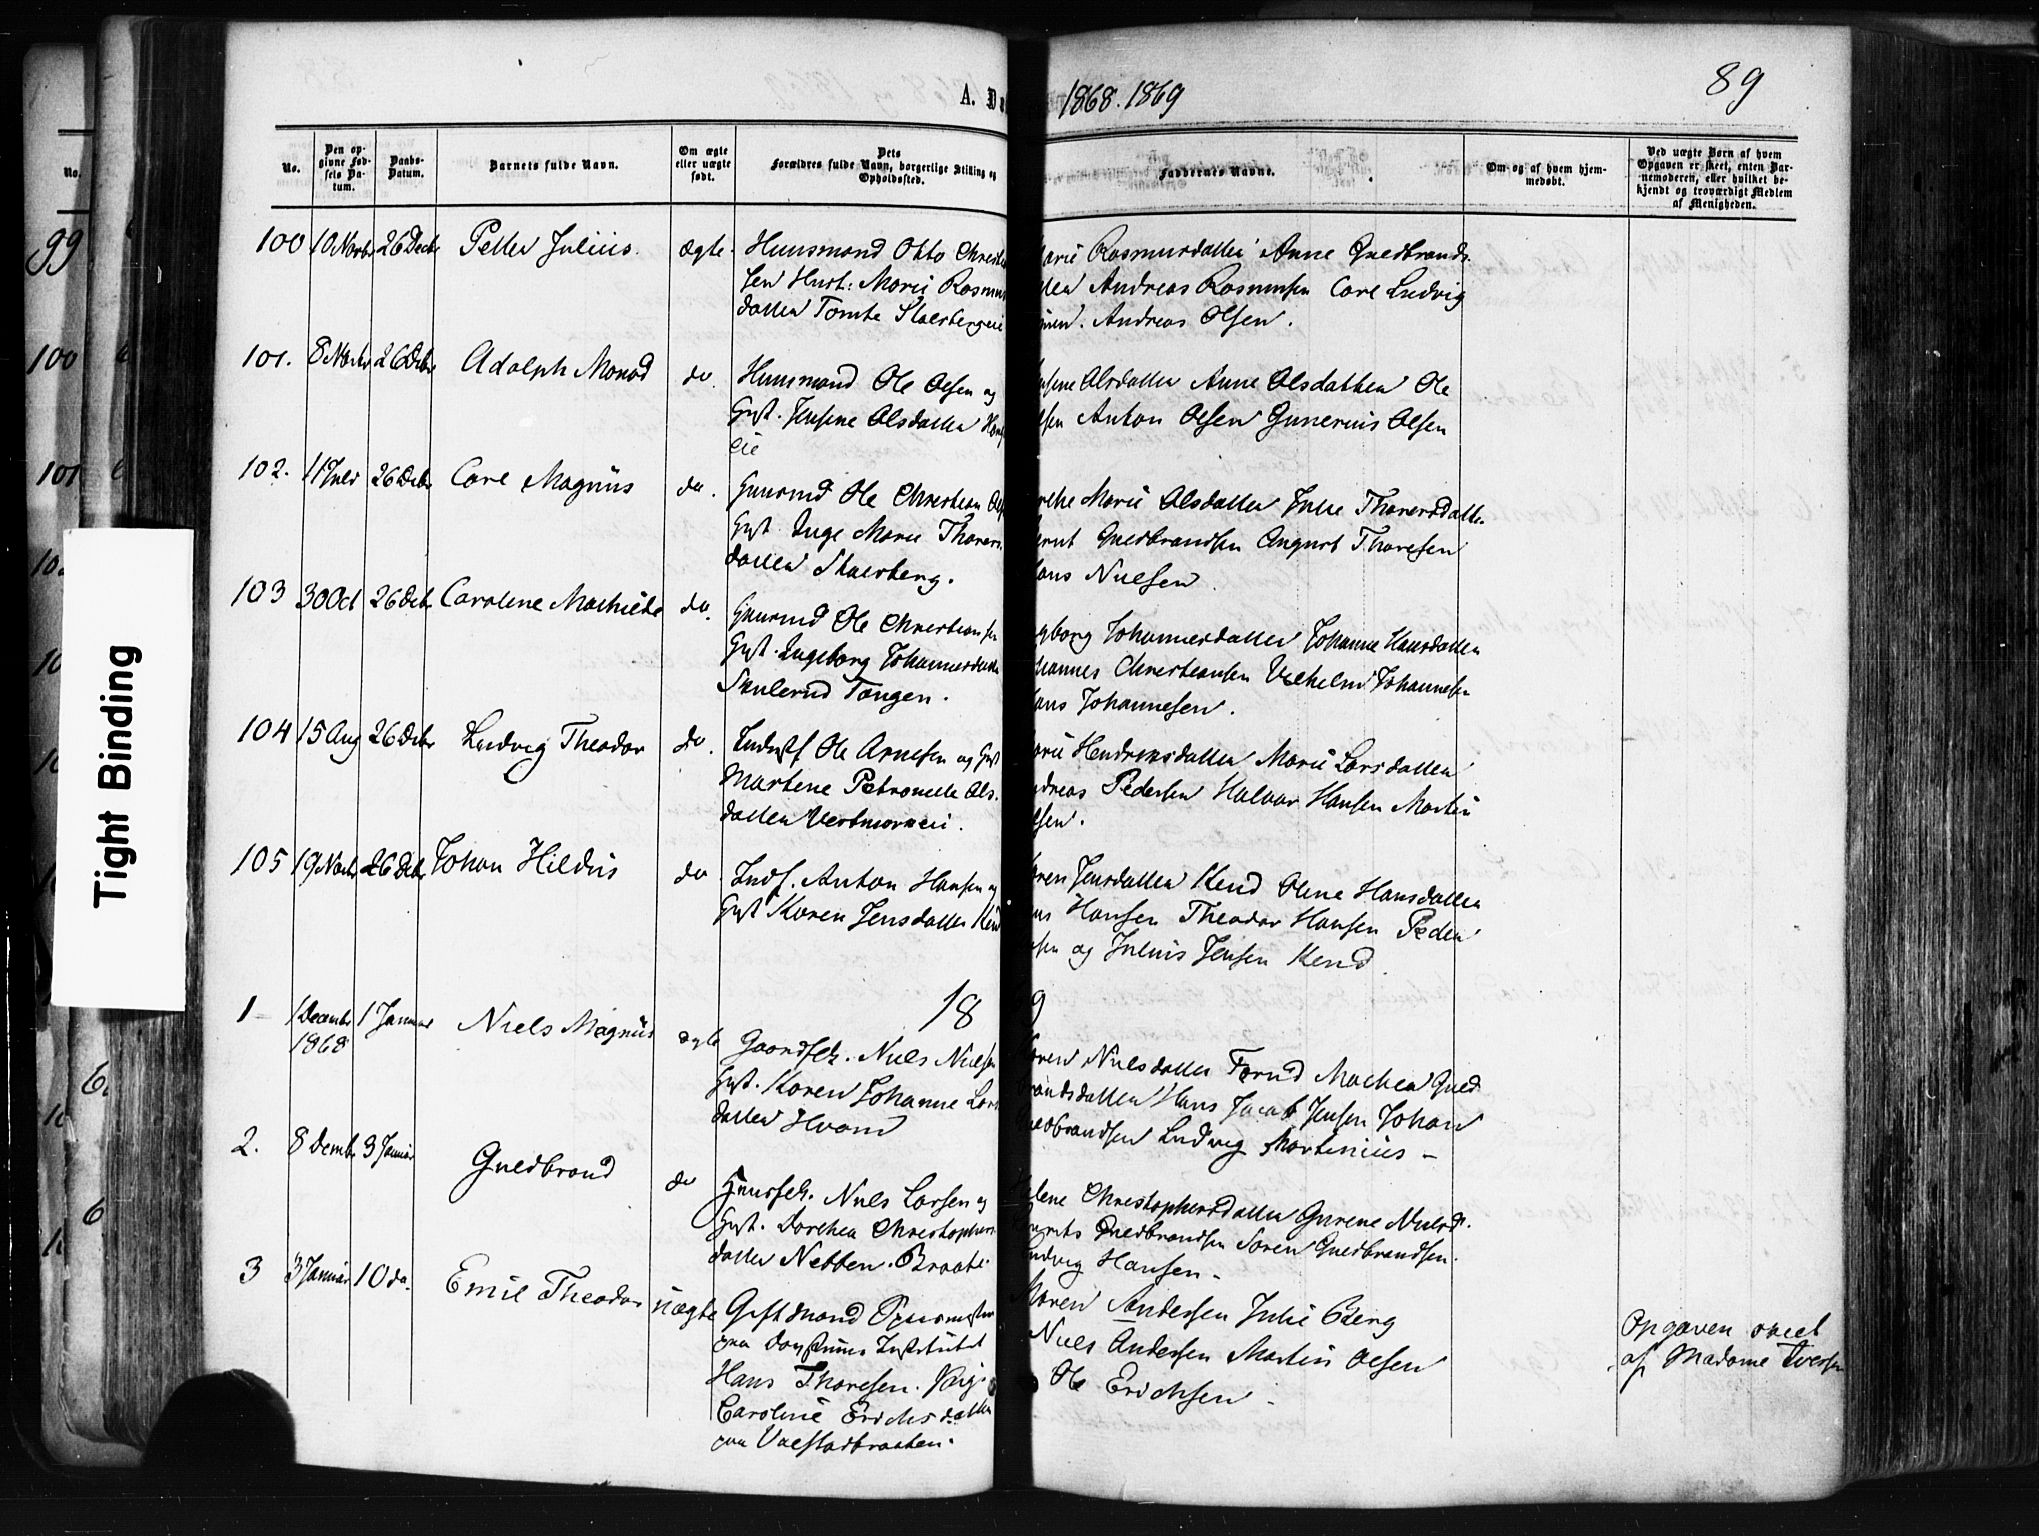 A. Dø
1868. 1869
89
No.
Den op-
givne Fød-
sels Da-
tum.
Daabs-
Datum.
Barnets fulde Navn.
Om ægte
eller uægte
født.
Dets
Forældres fulde Navn, borgerlige Stilling og
Opholdssted.
Faddernes Navne.
Om og af hvem hjem-
medøbt.
Ved uægte Børn af hvem
Opgaven er skeet, enten Bar-
nemoderen, eller hvilket be-
kjendt og troværdigt Medlem
af Menigheden.
99
100
101
Tight Binding
100 10 Novbr 26 Decbr Petter Julius. ægte. Huusmand Otto Christi
sen Hust: Marie Rasmus
datter Tomte Skalsbergeie
arie Rasmusdatter Anne Guldbrands
tter Andreas Rasmusen Carl Ludvig
Andreas Olsen.
101. 8 Novbr 26 Debr Adolph Monod do. Huusmand Ole Olsen og
Gust. Jensine Olsdatter
eie
nsine Olsdatter Anne Olsdatter Ole
lsen Anton Olsen Gunerius Olsen
102. 11 Juli 26 Debr Carl Magnus do. Ole Christian Ols
Gust. Inge Marie Thorers
datter Skalsberg.
rthe Marie Olsdatter Julie Thorersdatter
ernt Guldbrandsen August Thoresen
ans Nielsen
103 30 Oct 26 Debr Caroline Mathilde do. Ole Christiansen
Gust. Ingeborg Johannesdatter
Skulerud Tangen.
geborg Johannesdatter Johanne Hansdatter
hannes Christiansen Vilhelm Johannesen
ans Johannesen.
104 15 Aug 26 Debr Ludvig Theodor do. Ole Arnesen og Gust
Martine Petronelle Ols-
datter Vestmoreneie.
arie Hendriksdatter Marie Larsdatter
ndreas Pedersen Halvor Hansen Martin
lsen.
105 19 Novbr 26 Debr Johan Hildus do Indf. Anton Hansen og
Gust Karen Jensdatter Kind
aren Jensdatter Kind Oline Hansdatter
ns Hansen Theodor Hansen Peder
nsen og Julius Jensen Kind
18 69
1 1 Decembr
1868
1 Januar Niels Magnus ægte Niels Nielsen
Gust. Karen Johanne Lars
datter Hvam
aren Nielsdatter Forud Mathea Guld
brandsdatter Hans Jacob Jensen Johan
uldbrandsen Ludvig Martinius –
2. 8 Dembr 3 Januar Guldbrand do Niels Larsen og
Gust. Dorthea Christophers
datter Nebben. Braate.
elene Christophersdatter Gurine Nielsd.
Guldbrandsen Søren Guldbrandsen.
udvig Hansen –
3 3 Januar 10 do. Emil Theodor uægte Gift Mand
paa Institut
Hans Thoresen. Pige
Caroline Erichsdatter
paa Valstadbraaten.
Maren Andersen Julie Berg
Niels Andersen Martin Olsen
Ole Erichsen –
Opgaven skeet
af Madame Iversen